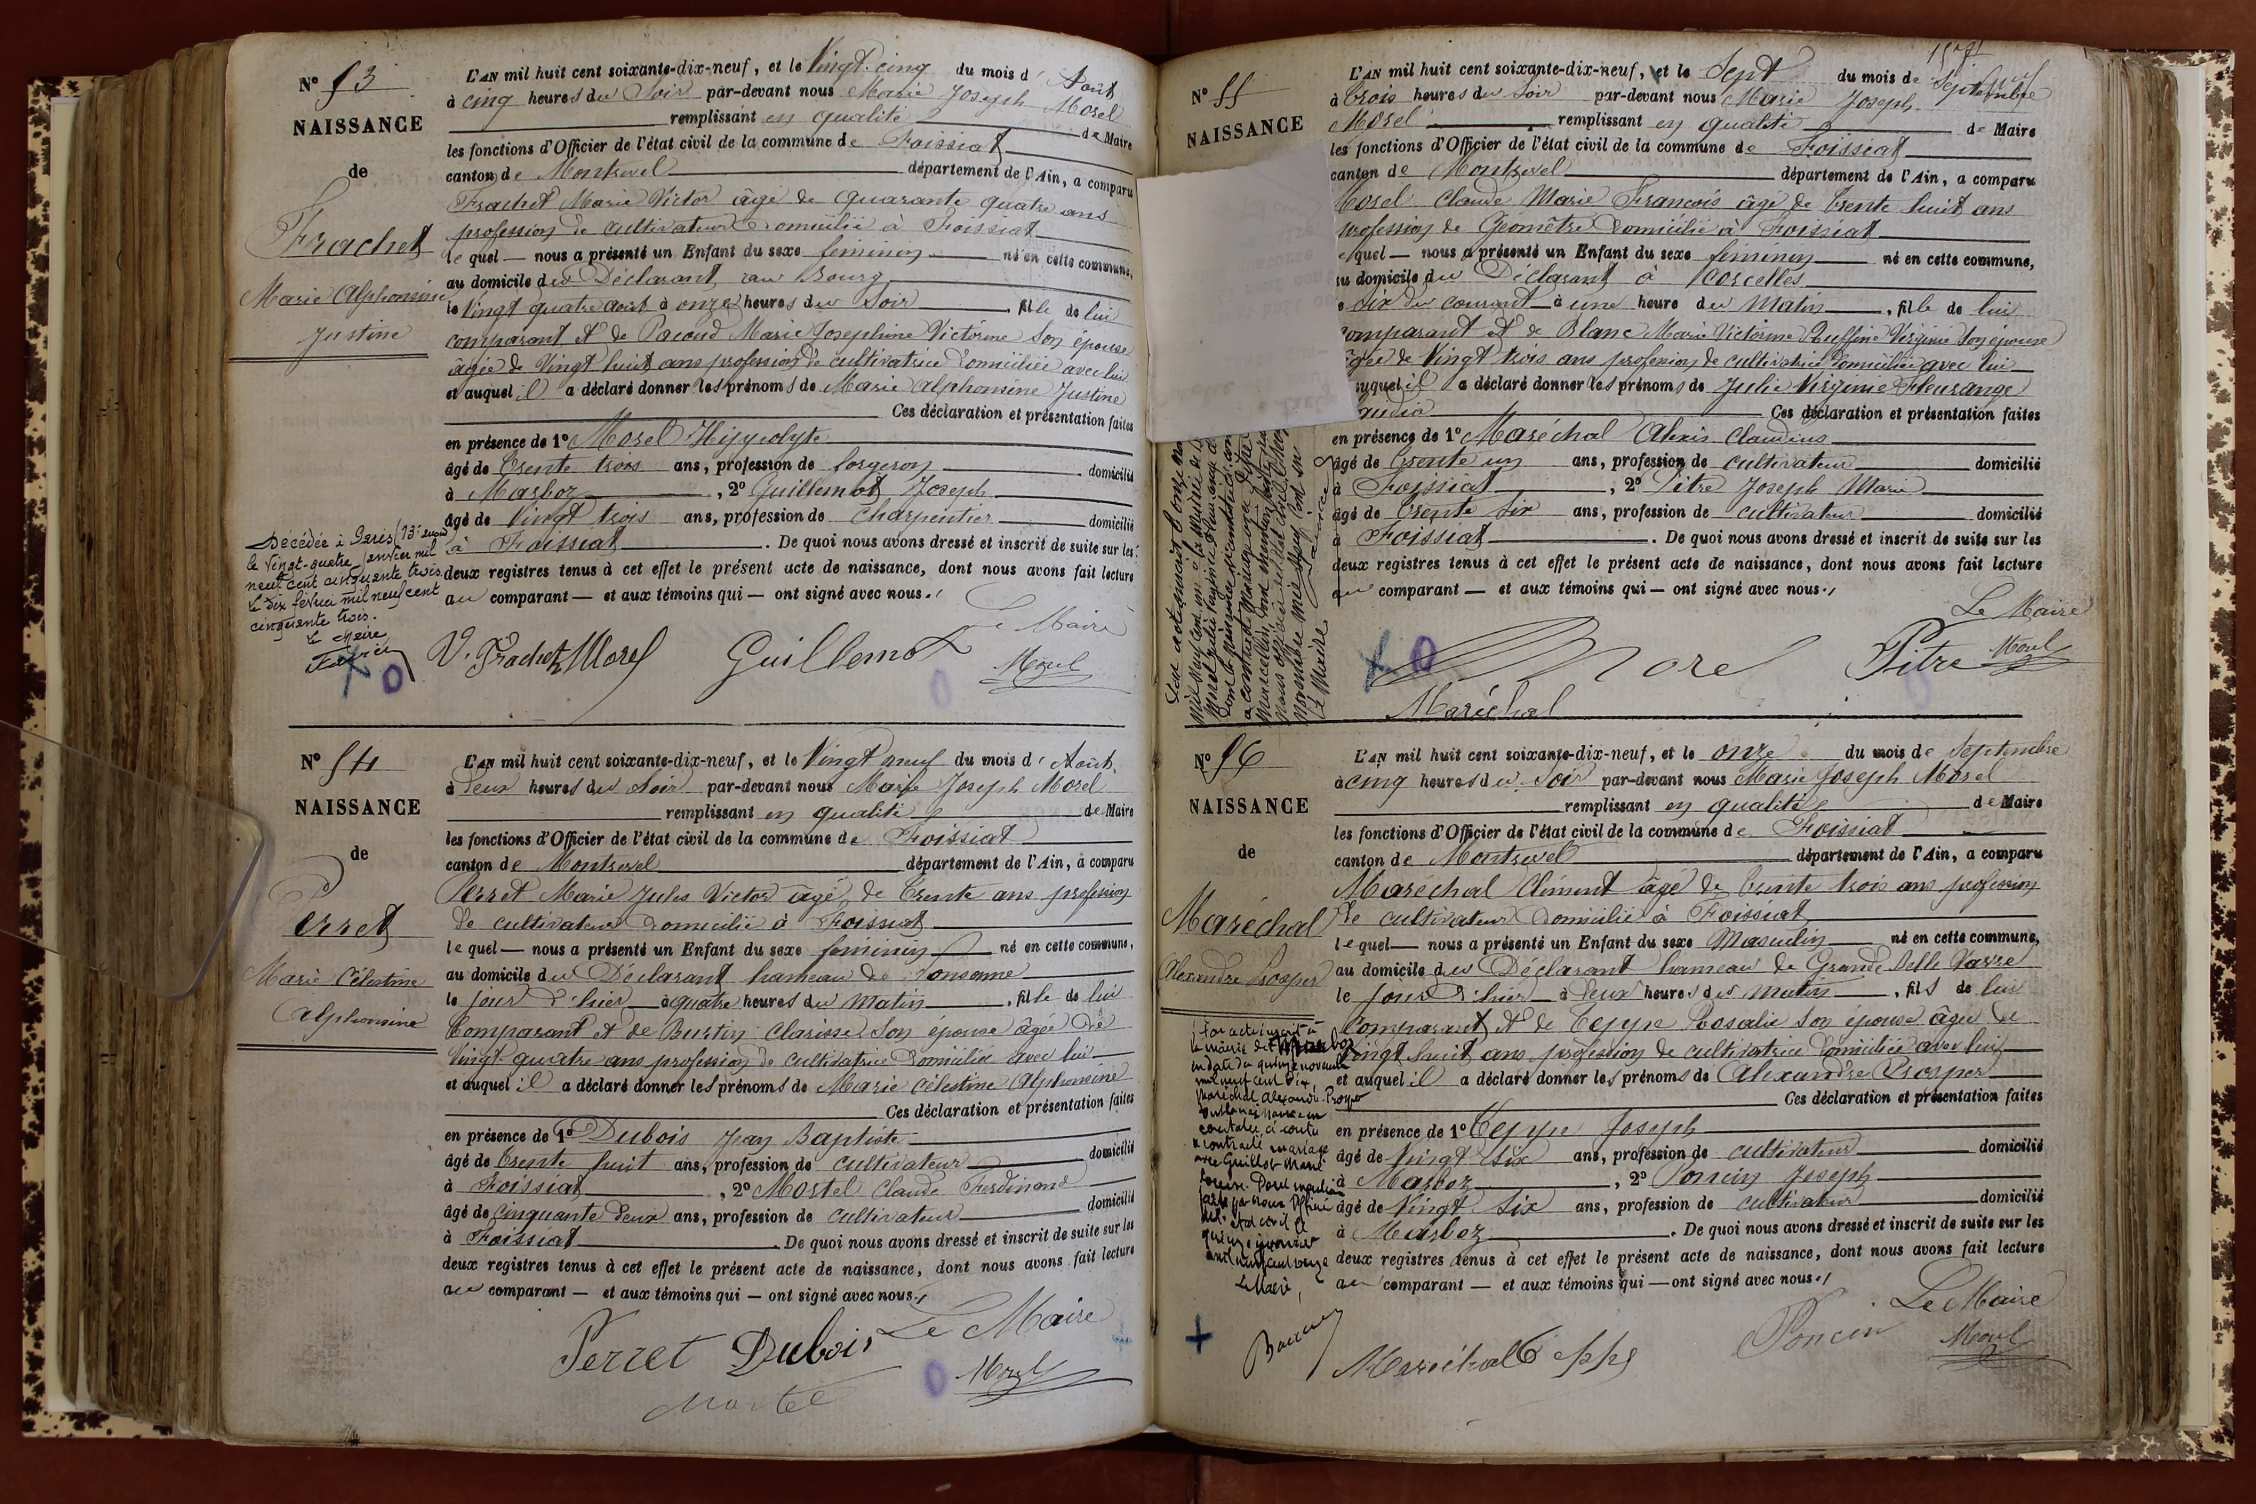 N° 53
NAISSANCE
de
Frachet
Marie Alphonsine
Justine
Décédée à Paris (13e
le vingt-quatre janvier mil
neuf cent cinquante trois.
Le dix février mil neuf cent
cinquante trois.
Le Maire
L'AN mil huit cent soixante-dix-neuf, et le Vingt cinq du mois d' Août
à cinq heures du Soir par-devant nous Marie Joseph Morel
remplissant en qualité de Maire
les fonctions d'Officier de l'état civil de la commune de Foissiat
canton de Montrevel département de l'Ain, a comparu
Frachet Marie Victor âgé de quarante quatre ans
profession de cultivateur domicilié à Foissiat
le quel — nous a présenté un Enfant du sexe feminin né en cette commune,
au domicile du Déclarant au Bourg
le Vingt quatre août à onze heures du Soir, fille de lui
comparant et de Pacoud Marie Josephine Victorine son épouse
âgée de Vingt huit ans profession de cultivatrice domiciliée avec lui
et auquel il a déclaré donner les prénoms de Marie Alphonsine Justine
Ces déclaration et présentation faites
en présence de 1° Morel Hippolyte
âgé de trente trois ans, profession de forgeron domicilié
à Marboz, 2° Guillemot Joseph
âgé de Vingt trois ans, profession de charpentier domicilié
à Foissiat. De quoi nous avons dressé et inscrit de suite sur les
deux registres tenus à cet effet le présent acte de naissance, dont nous avons fait lecture
au comparant — et aux témoins qui — ont signé avec nous.
Le Maire
V. Frachet Morel Guillemot Morel
N° 54
NAISSANCE
de
Perret
Marie Célestine
Alphonsine
L'AN mil huit cent soixante-dix-neuf, et le Vingt neuf du mois d' Août
à deux heures du Soir par-devant nous Marie Joseph Morel
remplissant en qualité de Maire
les fonctions d'Officier de l'état civil de la commune de Foissiat
canton de Montrevel département de l'Ain, a comparu
Perret Marie Jules Victor âgé de trente ans profession
de cultivateur domicilié à Foissiat
le quel — nous a présenté un Enfant du sexe feminin né en cette commune,
au domicile du Déclarant hameau de
le jour d'hier à quatre heures du matin, fille de lui
Comparant et de Burtin Clarisse son épouse âgée de
Vingt quatre ans profession de cultivatrice domiciliée avec lui
et auquel il a déclaré donner les prénoms de Marie Célestine Alphonsine
Ces déclaration et présentation faites
en présence de 1° Dubois Jean Baptiste
âgé de trente huit ans, profession de cultivateur domicilié
à Foissiat, 2° Mortel Claude Ferdinand
âgé de cinquante deux ans, profession de cultivateur domicilié
à Foissiat. De quoi nous avons dressé et inscrit de suite sur les
deux registres tenus à cet effet le présent acte de naissance, dont nous avons fait lecture
au comparant — et aux témoins qui — ont signé avec nous.
Le Maire
Perret Dubois Morel
Mortel
N° 55
NAISSANCE
Le Maire
L'AN mil huit cent soixante-dix-neuf, et le Sept du mois de Septembre
à trois heures du Soir par-devant nous Marie Joseph
Morel remplissant en qualité de Maire
les fonctions d'Officier de l'état civil de la commune de Foissiat
canton de Montrevel département de l'Ain, a comparu
Morel Claude Marie François âgé de trente huit ans
profession de Géomètre domicilié à Foissiat
quel — nous a présenté un Enfant du sexe feminin né en cette commune,
au domicile du Déclarant à Corcelles
six du courant à une heure du Matin, fille de lui
comparant et de Blanc Marie Victorine Virginie son épouse
âgée de Vingt trois ans profession de cultivatrice domiciliée avec lui
auquel il a déclaré donner les prénoms de Julie Virginie Fleurange
Ces déclaration et présentation faites
en présence de 1° Maréchal Alexis Claudius
âgé de trente un ans, profession de cultivateur domicilié
à Foissiat, 2° Pitre Joseph Marie
âgé de trente six ans, profession de cultivateur domicilié
à Foissiat. De quoi nous avons dressé et inscrit de suite sur les
deux registres tenus à cet effet le présent acte de naissance, dont nous avons fait lecture
au comparant — et aux témoins qui — ont signé avec nous.
Le Maire
Morel Pitre Morel
Maréchal
N° 56
NAISSANCE
de
Maréchal
Alexandre Prosper
Par acte inscrit à
la mairie de Marboz
en date du quinze novembre
mil neuf cent dix,
Maréchal Alexandre Prosper
dont la naissance est
constatée ci-contre
a contracté mariage
avec Guillot Marie
Le Maire,
L'AN mil huit cent soixante-dix-neuf, et le onze du mois de Septembre
à cinq heures du Soir par-devant nous Marie Joseph Morel
remplissant en qualité de Maire
les fonctions d'Officier de l'état civil de la commune de Foissiat
canton de Montrevel département de l'Ain, a comparu
Maréchal Clément âgé de trente trois ans profession
de cultivateur domicilié à Foissiat
le quel — nous a présenté un Enfant du sexe Masculin né en cette commune,
au domicile du Déclarant hameau de Grande Velle Varre
le jour d'hier à deux heures du matin, fils de lui
Comparant et de Teppe Rosalie son épouse âgée de
Vingt huit ans profession de cultivatrice domiciliée avec lui
et auquel il a déclaré donner les prénoms de Alexandre Prosper
Ces déclaration et présentation faites
en présence de 1° Teppe Joseph
âgé de Vingt six ans, profession de cultivateur domicilié
à Marboz, 2° Poncin Joseph
âgé de Vingt six ans, profession de cultivateur domicilié
à Marboz. De quoi nous avons dressé et inscrit de suite sur les
deux registres tenus à cet effet le présent acte de naissance, dont nous avons fait lecture
au comparant — et aux témoins qui — ont signé avec nous.
Le Maire
Maréchal Teppe Poncin Morel